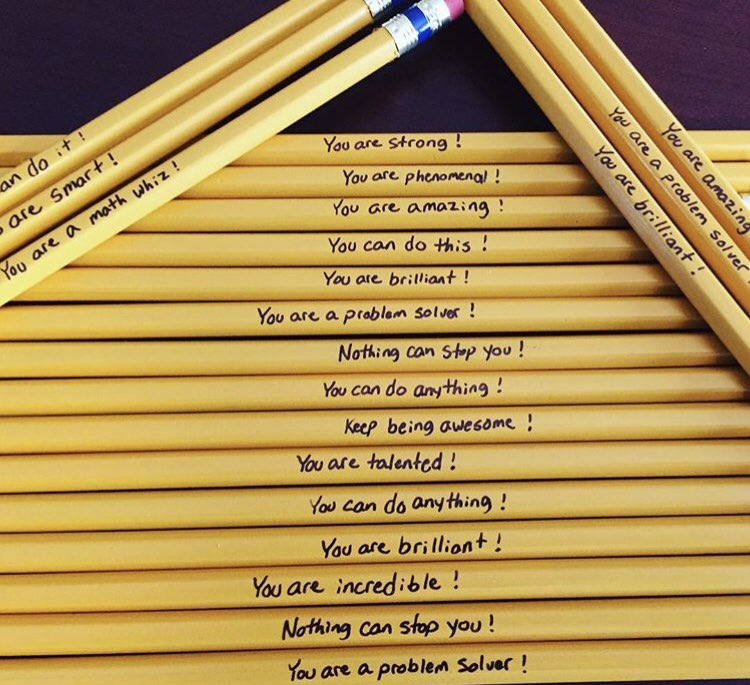 an do it!
are smart!
You are a math whiz!
You are strong!
You are phenomenal!
You are amazing!
You can do this!
You are brilliant!
You are a problem solver!
Nothing can stop you!
You can do anything!
Keep being awesome!
You are talented!
You can do anything!
You are brilliant!
You are incredible!
Nothing can stop you!
You are a problem solver!
You are brilliant!
You are a problem solver
You are amazing